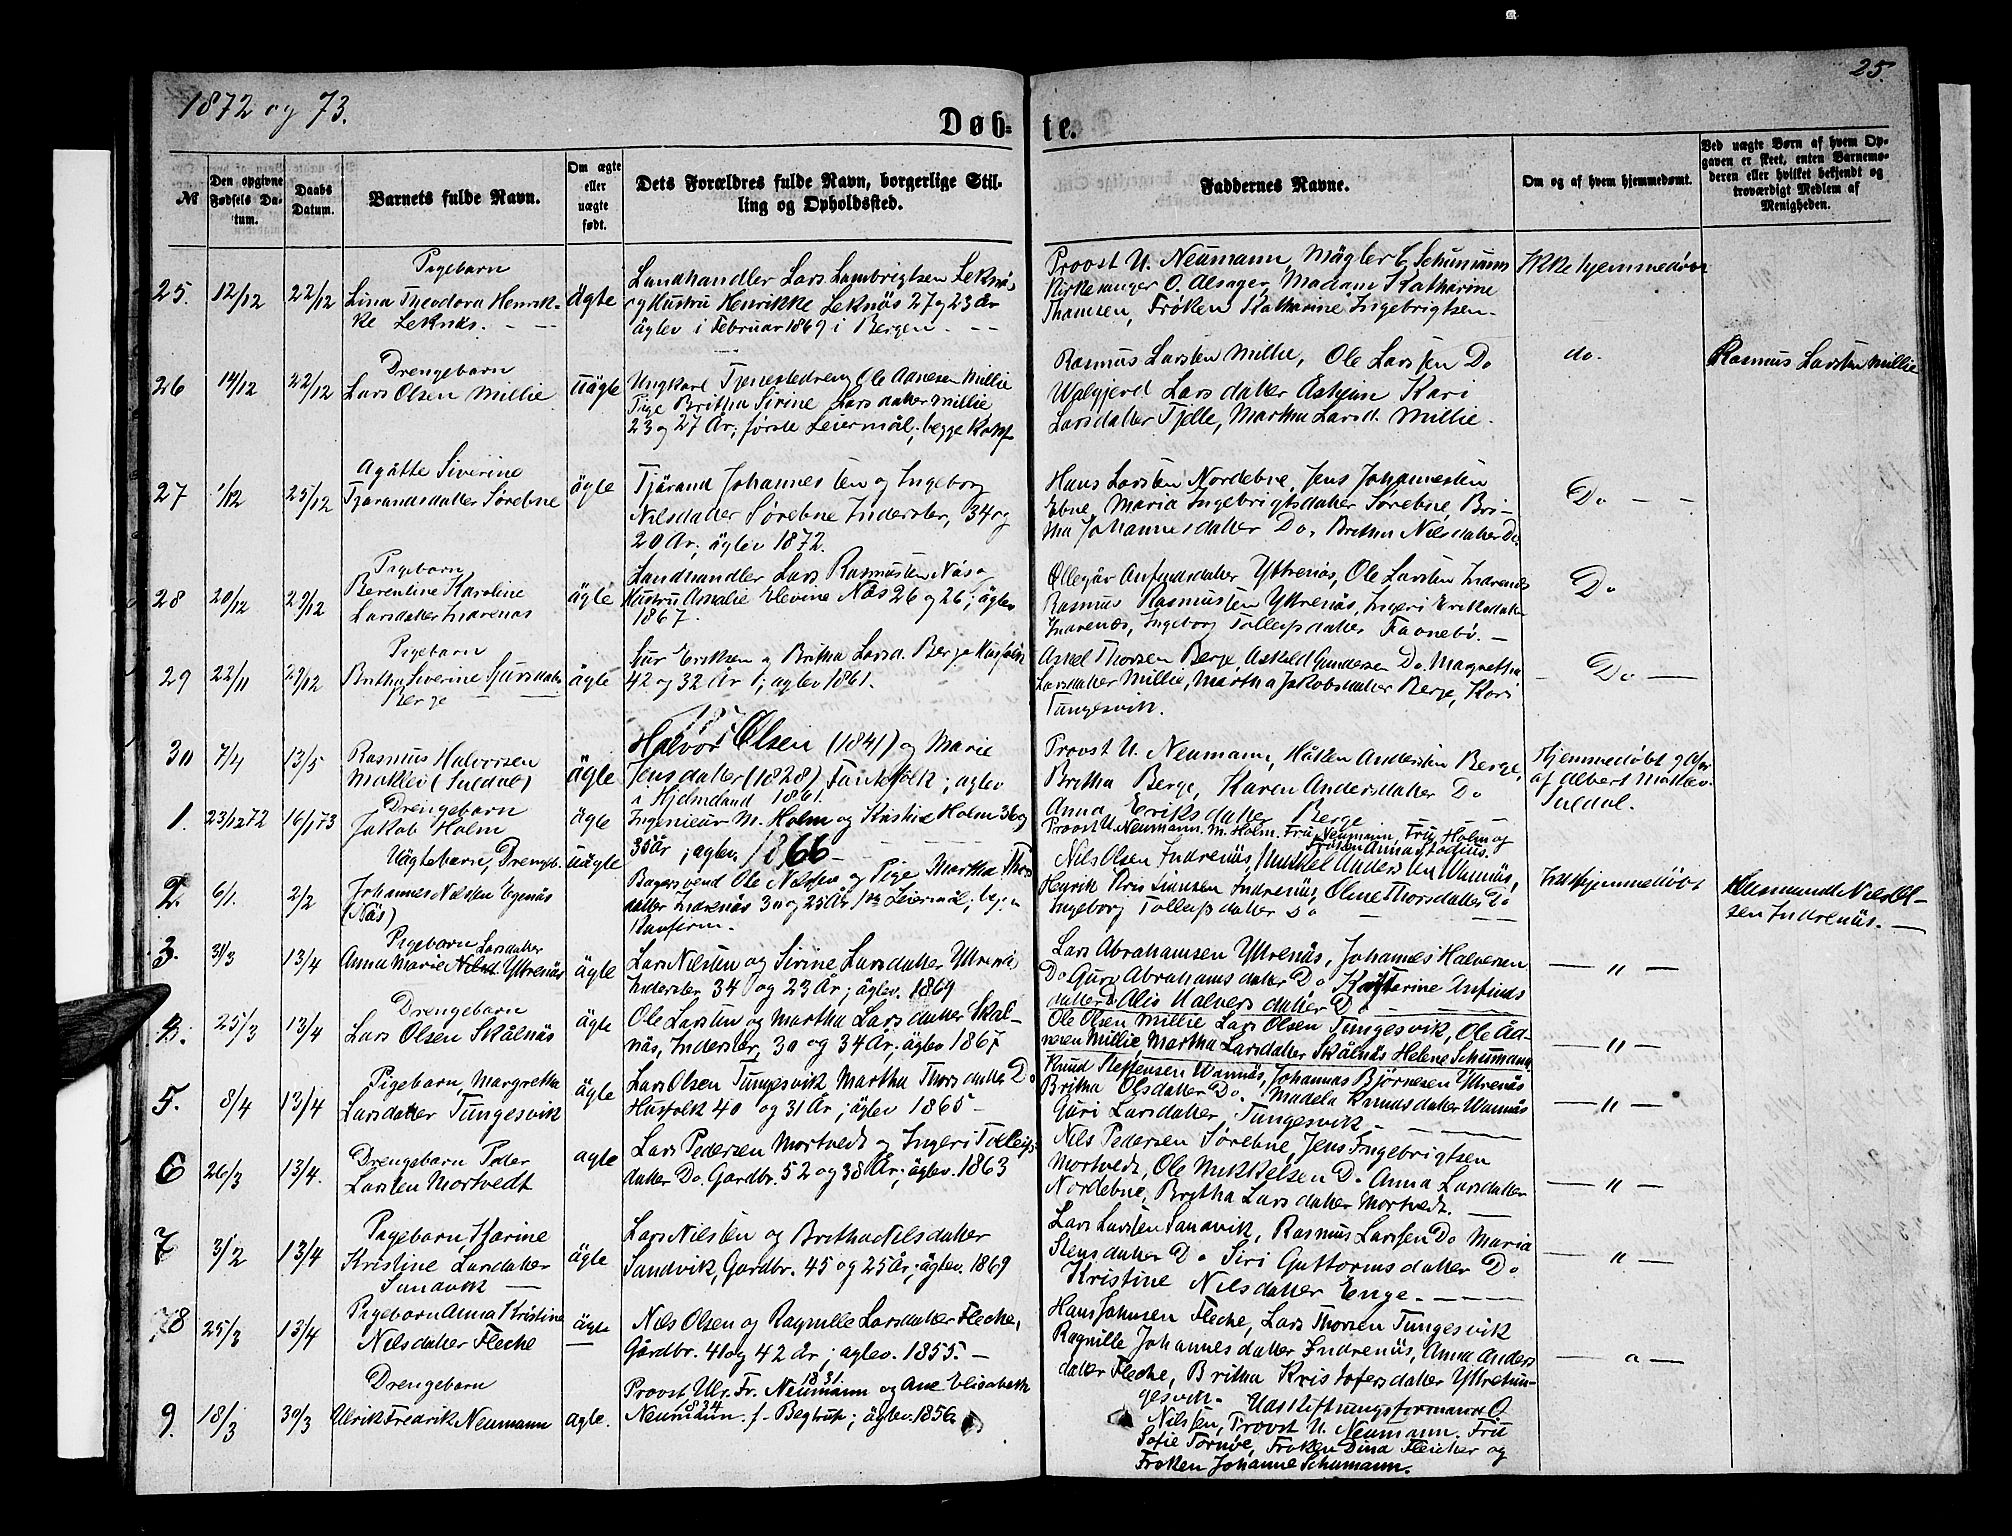 1872 og 73.
25.
Døb-
te.
№
Den opgivne Fødsels Da-
tum.
Daabs
Datum.
Barnets fulde Navn.
Om ægte
eller
uægte
født.
Dets Forældres fulde Navn, borgerlige Stil-
ling og Opholdssted.
Faddernes Navne.
Om og af hvem hjemmedøbt.
Ved uægte Børn af hvem Op-
gaven er skeet, enten Barnemo-
deren eller hvilket bekjendt og
troværdigt Medlem af
Menigheden.
25. 12/12 22/12
Pigebarn
Lina Theodora Henrik-
ke Leknäs.
ägte
Landhandler Lars Lambrigtsen Leknäs
og Hustru Henrikke Leknäs 27 og 23 år
äglev i Februar 1869 i Bergen.
Provst U. Neumann, Mägler C. Schumann
Kirkesanger O. Alsager, Madam Katharine
Thamsen, Frøken Katharine Ingebrigtsen.
Ikke hjemmedøbt
26 14/12 22/12
Drengebarn
Lars Olsen Millie
uägte
Ungkarl Tjenestedreng Ole Aanesen Millie
Pige Britha Sirine Larsdatter Millie
23 og 27 År; første Leiermål, begge Konf
Rasmus Larssen Millie, Ole Larssen Do
Walgjerd Larsdatter Askjem Kari
Larsdatter Tjelle, Martha Larsd. Millie.
do.
Rasmus Larssen Millie
27 1/12 25/12
Agätte Siverine
Tjärandsdatter Sørebne
ägte
Tjärand Johannessen og Ingeborg
Nilsdatter Sørebne Inderster, 34 og
20 År, äglev 1872.
Hans Larssen Nordebne, Jens Johannessen
Ebne, Maria Ingebrigtsdatter Sørebne, Bri-
tha Johannesdatter Do. Britha Nilsdatter Do
Do
28 20/12 29/12
Pigebarn
Berentine Karoline
Larsdatter Indrenäs
ägte
Landhandler Lars Rasmussen Näs og
Hustru Amalie Elevine Näs 26 og 26; äglev
1867.
Øllegår Anfindsdatter Yttrenäs, Ole Larssen Indrenäs
Rasmus Rasmussen Yttrenäs, Ingeri Eriksdatter
Indrenäs, Ingeborg Tollefsdatter Favnebø.
Do
29 22/11 29/12
Pigebarn
Britha Siverine Sjursdatter
Berge
ägte
Sjur Eriksen og Britha Larsd. Berge Husfolk
42 og 32 År; äglev 1861.
Askel Thorsen Berge, Askild Gundersen Do. Magretha
Larsdatter Millie, Martha Jakobsdatter Berge, Kari
Tungesvik.
Do
30 7/4 13/5
Rasmus Halvorsen
Moklev (Suldal)
ägte
Halvor Olsen (1841) og Marie
Jensdatter (1828) Fantefolk; äglev
i Hjelmeland 1861.
Provst U. Neumann, Håken Andersen Berge,
Britha Berge, Karen Andersdatter Do
Anna Eriksdatter Berge
Hjemmedøbt 9 Apr
af Albert Moklev
Suldal.
1. 23/12 72 16/1 73
Drengebarn
Jakob Holm
ägte
Ingenieur M. Holm og Kristine Holm 36 og
35 år; äglev. 1866
Provst U. Neumann. M. Holm. Fru Neumann, Fru Holm og
Frøken Anna
2. 6/1. 2/2
Uägtebarn, Drengeb.
Johannes Nelssen Egenäs
(Näs)
uägte
Bagersvend Ole Nelssen og Pige Martha Thors
datter Indrenäs 30 og 25 År 1ste Leiermål; begge
Konfirm.
Nils Olsen Indrenäs, Mikkel Andersen Wannäs,
Henrik Kristiansen Indrenäs, Oline Thorsdatter Do
Ingeborg Tollefsdatter Do
Ikke hjemmedøbt
Husmand Nils Ol-
sen Indrenäs.
3. 31/3 13/4
Pigebarn Larsdatter
Anna Marie Nilsd. Yttrenäs
ägte
Lars Nilssen og Sirine Larsdatter Yttrenäs
Inderster 34 og 23 År; äglev. 1869
Lars Abrahamsen Yttrenäs, Johannes Halversen
Do Guro Abrahamsdatter Do Katterine Anfinds
datter Do Alis Halversdatter Do
"
4. 25/3 13/4
Drengebarn
Lars Olsen Skålnäs
ägte
Ole Larssen og Martha Larsdatter Skål-
näs, Inderster, 30 og 34 År; äglev 1867
Ole Olsen Millie Lars Olsen Tungesvik, Ole Åd-
neren Millie, Martha Larsdatter Skålnäs Helene Schumann
"
5. 8/4 13/4
Pigebarn, Margretha
Larsdatter Tungesvik
ägte
Lars Olsen Tungesvik Martha Thorsdatter Do
Husfolk 40 og 31 År; äglev 1865
Knud Steffensen Wannäs, Johannas Bjørnesen Yttrenäs
Britha Olsdatter Do. Madela Knudsdatter Wannäs
Guri Larsdatter Tungesvik
"
6 26/3 13/4.
Drengebarn Peder
Larssen Mortvedt
agte
Lars Pedersen Mortvedt og Ingeri Tollefs
datter Do. Gardbr. 52 og 38 År; äglev. 1863
Nils Pedersen Sørebne, Jens Ingebrigtsen
Mortvedt, Ole Mikkelsen Do Anna Larsdatter
Nordebne, Britha Larsdatter Mortvedt.
"
7 3/2 13/4
Pigebarn, Karine
Kristine Larsdatter
Sandvik
ägte
Lars Nilssen og Britha Nilsdatter
Sandvik, Gardbr. 45 og 25 år; äglev. 1869
Lars Larssen Sandvik, Rasmus Larssen Do Maria
Stensdatter Do Siri Guttormsdatter Do
Kristine Nilsdatter Enge.
"
8 25/3 13/4
Pigebarn Anna Kristine
Nilsdatter Fleche
ägte
Nils Olsen og Ragnille Larsdatter Fleche,
Gårdbr. 41 og 42 år; aglev. 1855.
Hans Johnsen Fleche, Lars Thorsen Tungesvik
Ragnille Johannesdatter Indrenäs, Anna Anders
datter Fleche, Britha Kristofersdatter Yttretun-
gesvik.
"
9. 18/3 30/3
Drengebarn
Ulrik Fredrik Neumann
ägte.
Provst Ulr. Fr. Neumann 1831 og Ane Elisabeth
Neumann 1834 f. Begtrup; äglev. 1856
Udskiftningsformand O.
Nilssen, Provst U. Neumann. Fru
Sofie Tornøe, Frøken Dina Fleicher og
Frøken Johanne Schumann.